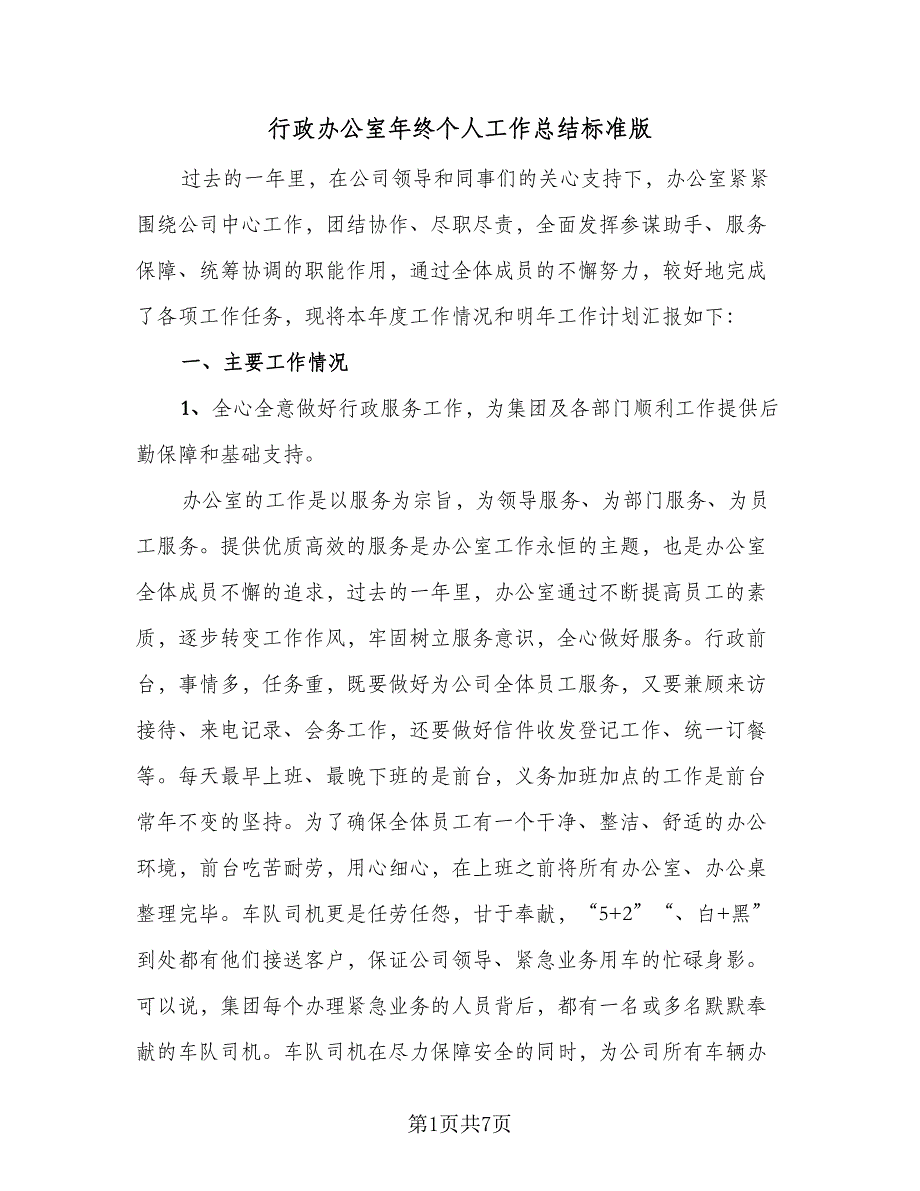 行政办公室年终个人工作总结标准版
过去的一年里，在公司领导和同事们的关心支持下，办公室紧紧
围绕公司中心工作，团结协作、尽职尽责，全面发挥参谋助手、服务
保障、统筹协调的职能作用，通过全体成员的不懈努力，较好地完成
了各项工作任务，现将本年度工作情况和明年工作计划汇报如下：
一、主要工作情况
1、全心全意做好行政服务工作，为集团及各部门顺利工作提供后
勤保障和基础支持。
办公室的工作是以服务为宗旨，为领导服务、为部门服务、为员
工服务。提供优质高效的服务是办公室工作永恒的主题，也是办公室
全体成员不懈的追求，过去的一年里，办公室通过不断提高员工的素
质，逐步转变工作作风，牢固树立服务意识，全心做好服务。行政前
台，事情多，任务重，既要做好为公司全体员工服务，又要兼顾来访
接待、来电记录、会务工作，还要做好信件收发登记工作、统一订餐
等。每天最早上班、最晚下班的是前台，义务加班加点的工作是前台
常年不变的坚持。为了确保全体员工有一个干净、整洁、舒适的办公
环境，前台吃苦耐劳，用心细心，在上班之前将所有办公室、办公桌
整理完毕。车队司机更是任劳任怨，甘于奉献，“5+2”“、白+黑”
到处都有他们接送客户，保证公司领导、紧急业务用车的忙碌身影。
可以说，集团每个办理紧急业务的人员背后，都有一名或多名默默奉
献的车队司机。车队司机在尽力保障安全的同时，为公司所有车辆办
第1页共7页